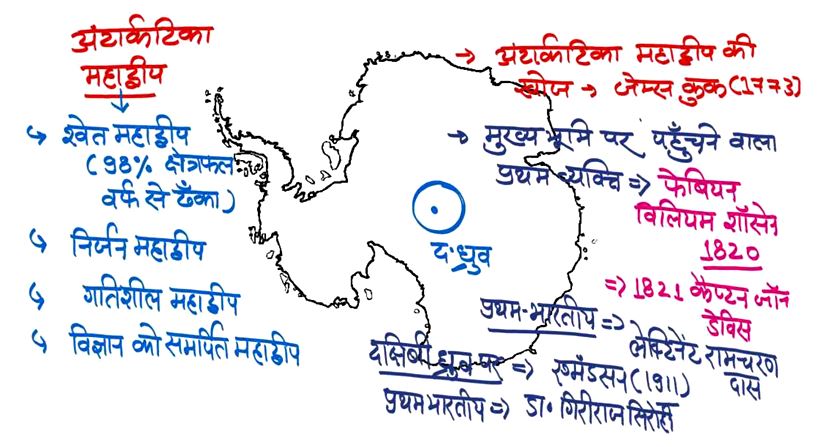 अंटार्कटिका
महाद्वीप
↳ श्वेत महाद्वीप
(98% क्षेत्रफल
वर्फ से ढँका)
↳ निर्जन महाद्वीप
↳ गतिशील महाद्वीप
↳ विज्ञान को समर्पित महाद्वीप
→ अंटार्कटिका महाद्वीप की
खोज → जेम्स कुक (1773)
→ मुख्य भूमि पर पहुँचने वाला
प्रथम व्यक्ति => फेबियन
विलियम शॉसेन
1820
=> 1821 कैप्टन जॉन
डेविस
द॰ ध्रुव
प्रथम-भारतीय => लेफ्टिनेंट रामचरण
दास
दक्षिणी ध्रुव पर => एमंडसन (1911)
प्रथम भारतीय => डा॰ गिरीराज सिरोही